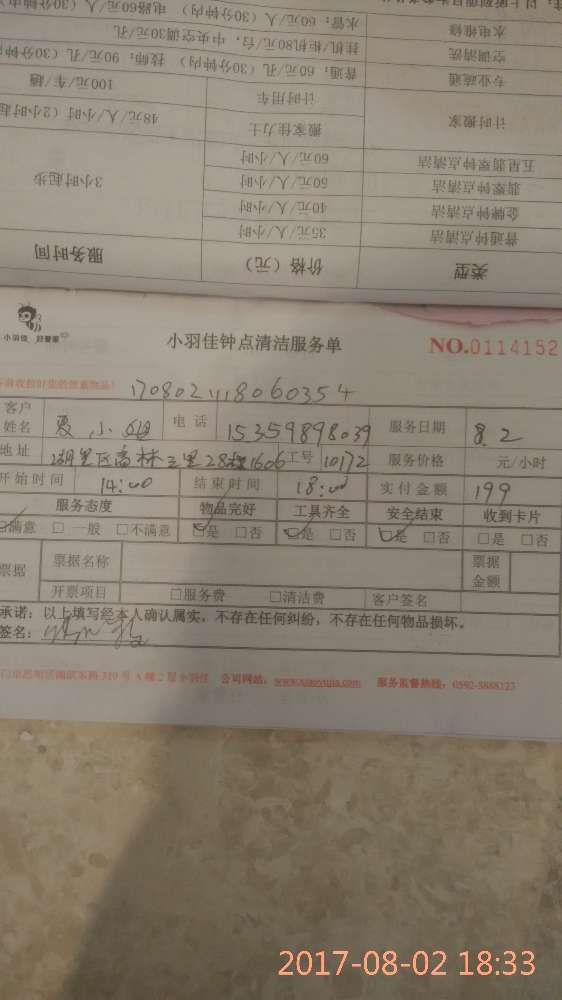 以上所列项目
水电维修 水管：60元/人（30分钟内） 电路60元/人（30分钟内
空调清洗 挂机/柜机80元/台，中央空调30元/孔
专业疏通 普通：60元/孔（30分钟内） 技师：90元/孔（30分钟内
计时搬家 计时用车 100元/车/趟
搬家佳力士 48元/人/小时（2小时起
五星翡翠钟点清洁 60元/人/小时 3小时起步
翡翠钟点清洁 50元/人/小时
金牌钟点清洁 40元/人/小时
普通钟点清洁 35元/人/小时
类型 价格（元） 服务时间
小羽佳 好管家
小羽佳钟点清洁服务单 NO.0114152
1708021118060354
客户姓名 夏小姐 电话 15359898039 服务日期 8.2
地址 湖里区高林三里28栋1606 工号 10172 服务价格 元/小时
开始时间 14:00 结束时间 18:00 实付金额 199
服务态度 物品完好 工具齐全 安全结束 收到卡片
满意 □一般 □不满意 是 □否 是 □否 是 □否 □是 □否
票据 票据名称 票据金额
开票项目 □服务费 □清洁费 客户签名
承诺：以上填写经本人确认属实，不存在任何纠纷，不存在任何物品损坏。
签名：
公司网站：www.xiaoyujia.com 服务监督热线：0592-5888123
2017-08-02 18:33